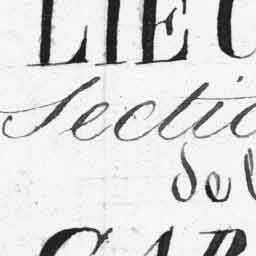 LIEU
Sectio
de l
CAR